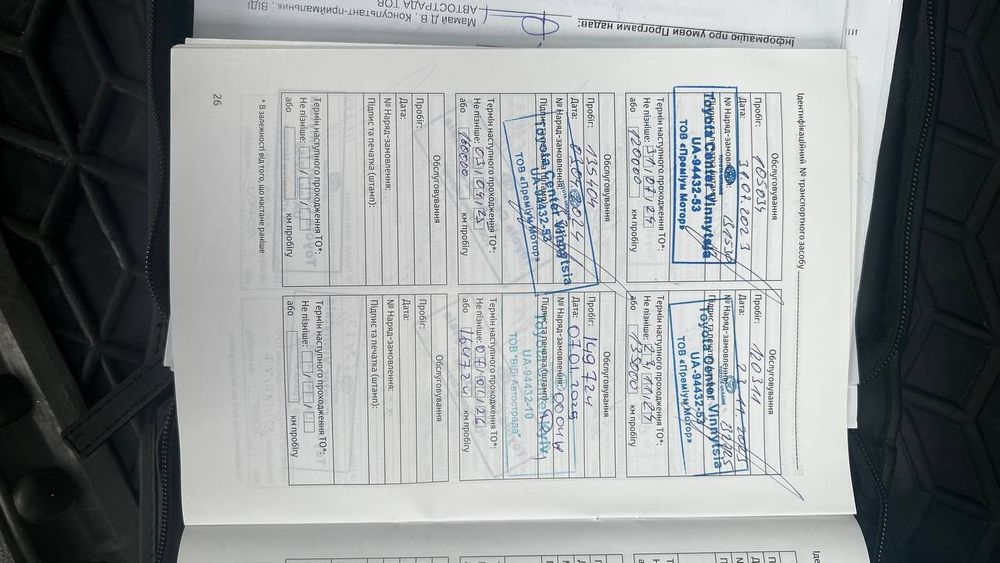 Інформацію про умови Програми надав:
Мамай Д.В., Консультант-приймальник, ВІДІ
АВТОСТРАДА ТОВ
Ідентифікаційний № транспортного засобу
Обслуговування
Пробіг: 105034
Дата: 31.07.2023
№ Наряд-замовлення:
Toyota Center Vinnytsia
UA-94432-53
ТОВ «Преміум Мотор»
Термін наступного проходження ТО*:
Не пізніше: 31/07/24
або 120000 км пробігу
Обслуговування
Пробіг: 120311
Дата:
№ Наряд-замовлення:
Toyota Center Vinnytsia
UA-94432-53
ТОВ «Преміум Мотор»
Термін наступного проходження ТО*:
Не пізніше:
або 135000 км пробігу
Обслуговування
Пробіг: 135404
Дата: 03.04.2024
№ Наряд-замовлення:
Підпис та печатка (штамп):
Toyota Center Vinnytsia
UA-94432-53
ТОВ «Преміум Мотор»
Термін наступного проходження ТО*:
Не пізніше: 03/04/25
або км пробігу
Обслуговування
Пробіг: 149724
Дата: 07.01.2025
№ Наряд-замовлення:
Підпис та печатка (штамп):
UA-94432-10
ТОВ "ВІДІ Автострада"
Термін наступного проходження ТО*:
Не пізніше: 07/01/26
або 164724 км пробігу
Обслуговування
Пробіг:
Дата:
№ Наряд-замовлення:
Підпис та печатка (штамп):
Термін наступного проходження ТО*:
Не пізніше:
або км пробігу
Обслуговування
Пробіг:
Дата:
№ Наряд-замовлення:
Підпис та печатка (штамп):
Термін наступного проходження ТО*:
Не пізніше:
або км пробігу
* В залежності від того, що настане раніше
26